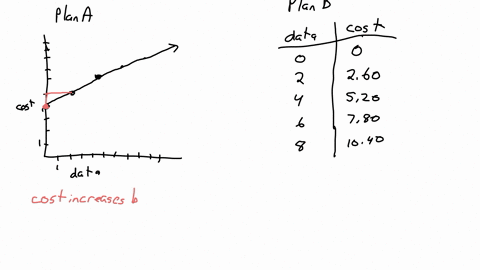 Plan A
cost
1
1
data
cost increases b
Plan B
data cost
0 0
2 2.60
4 5.20
6 7.80
8 10.40